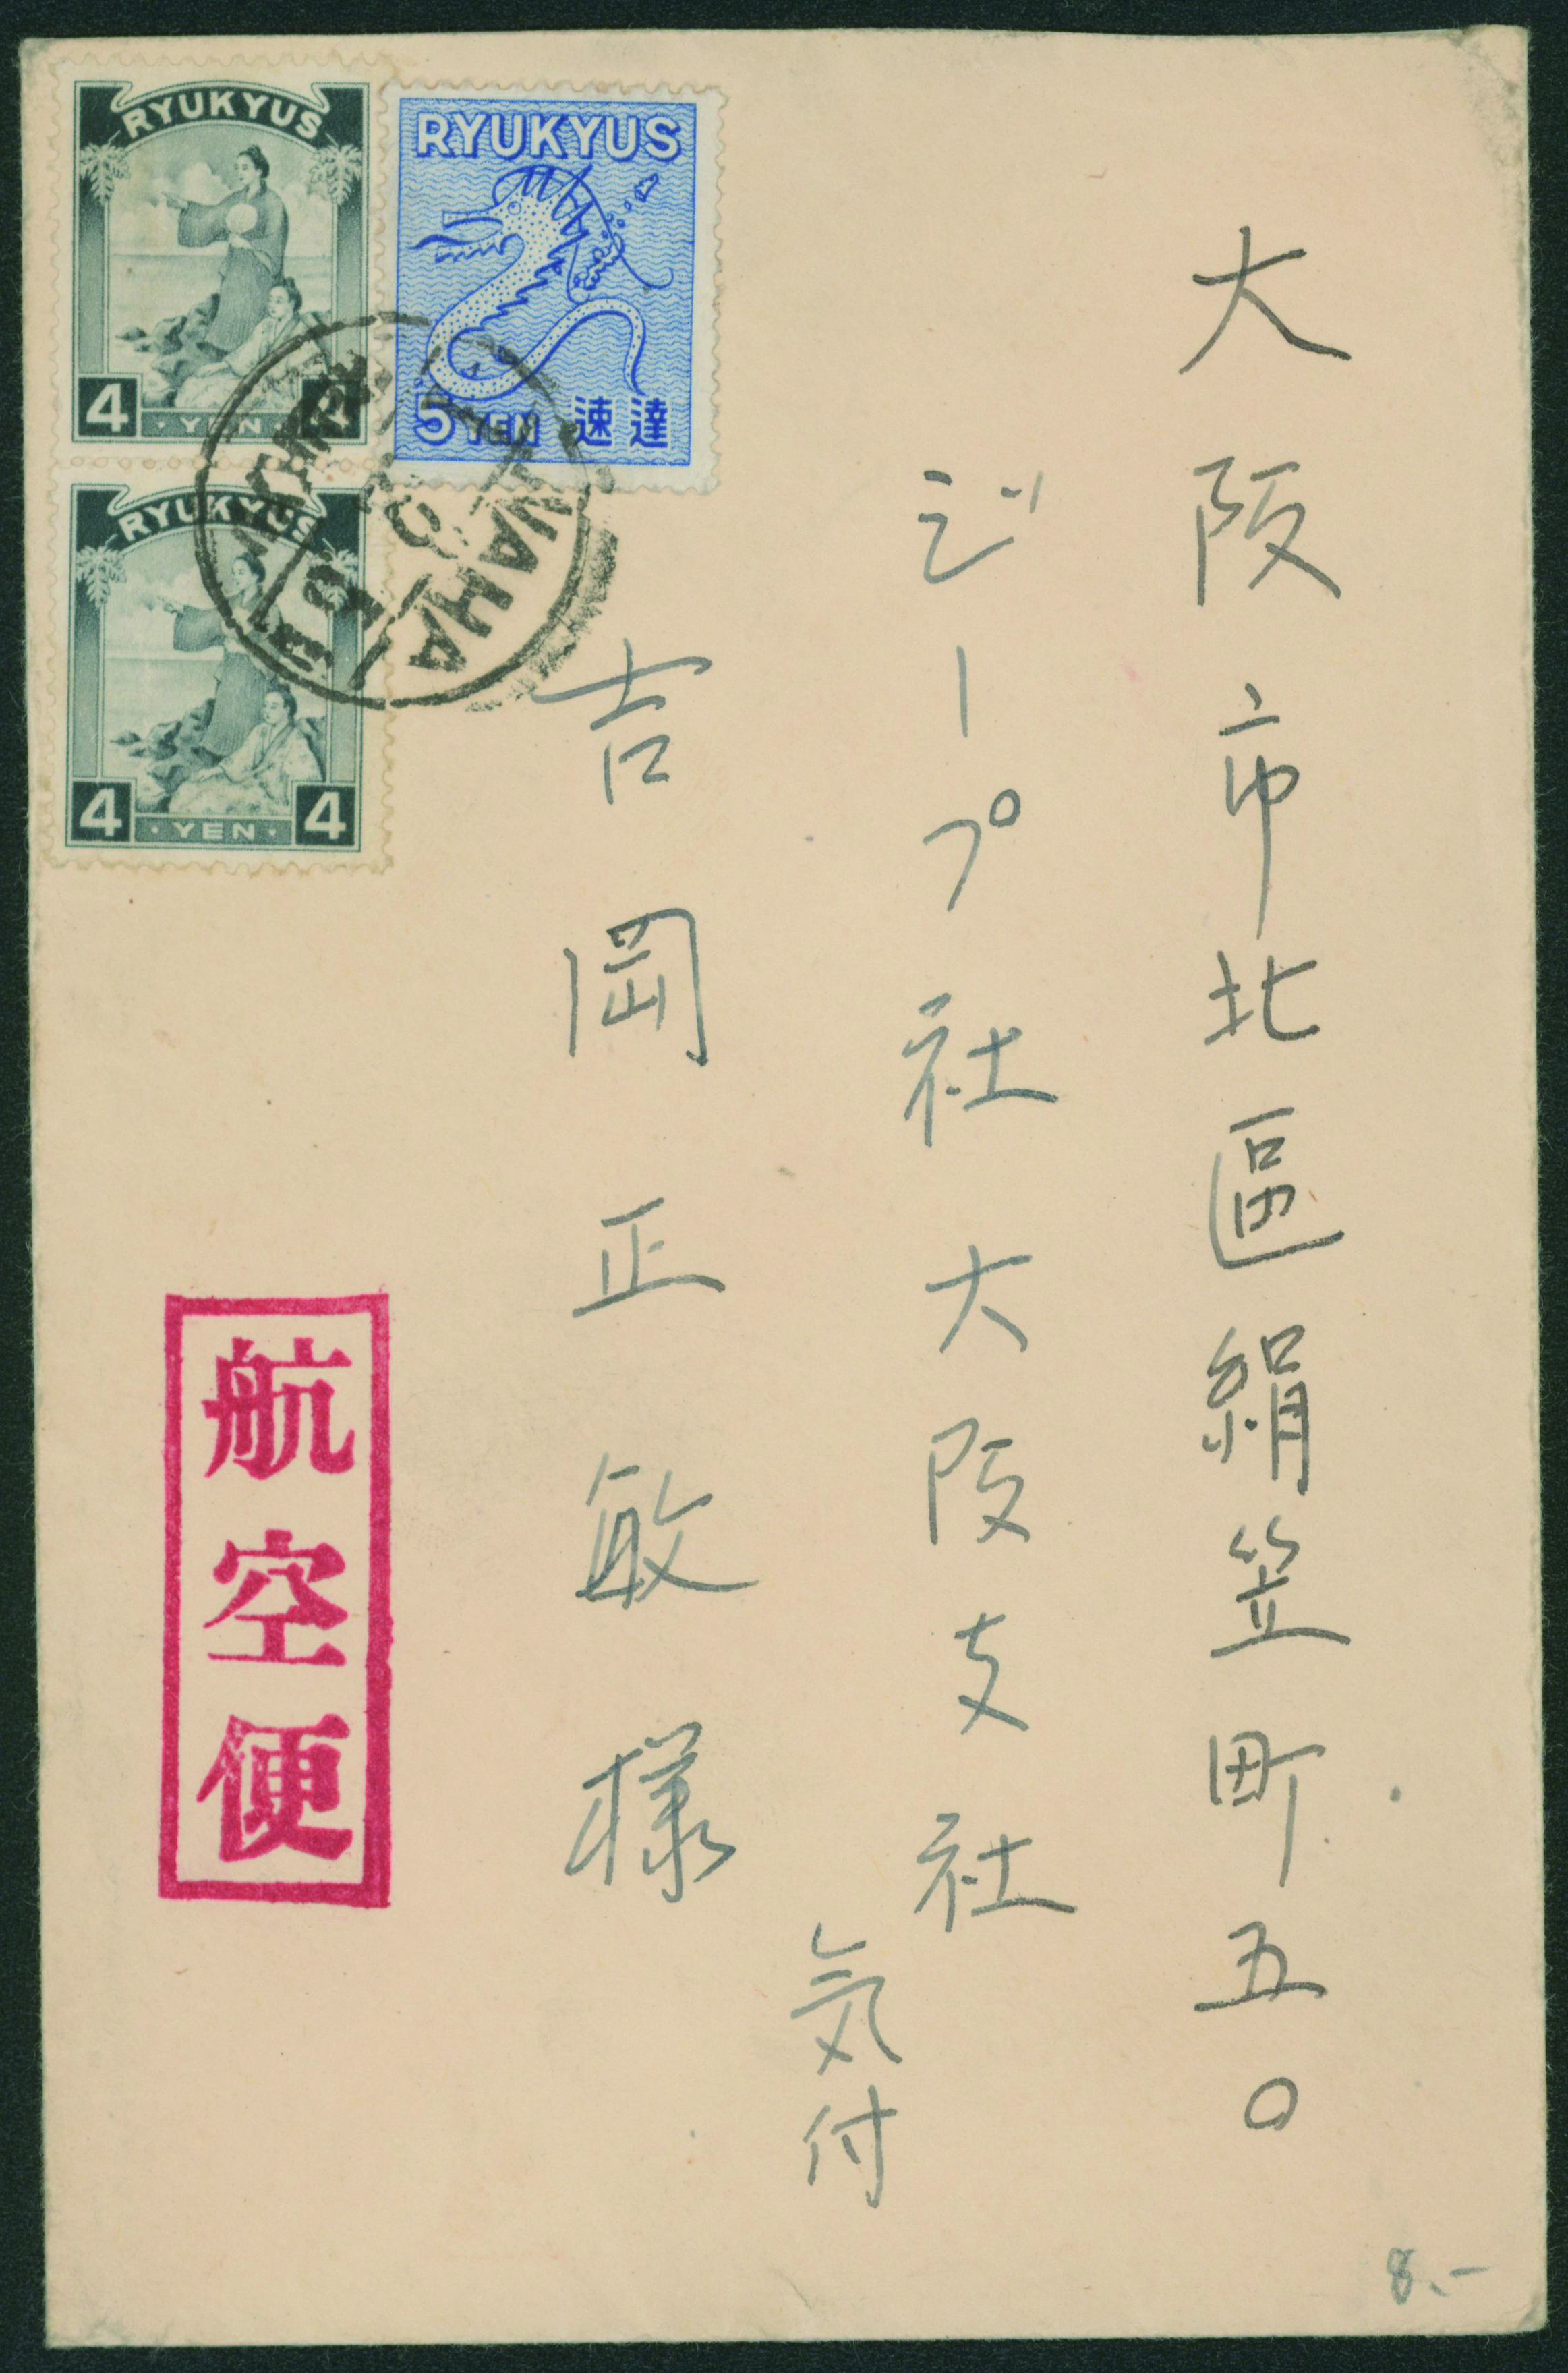 大阪市北區絹笠町五〇
ジープ社大阪支社
気付
吉岡正敏様
RYUKYUS
4 YEN
RYUKYUS
5 YEN 速達
RYUKYUS
4 YEN 4
NAHA
航空便
8.-